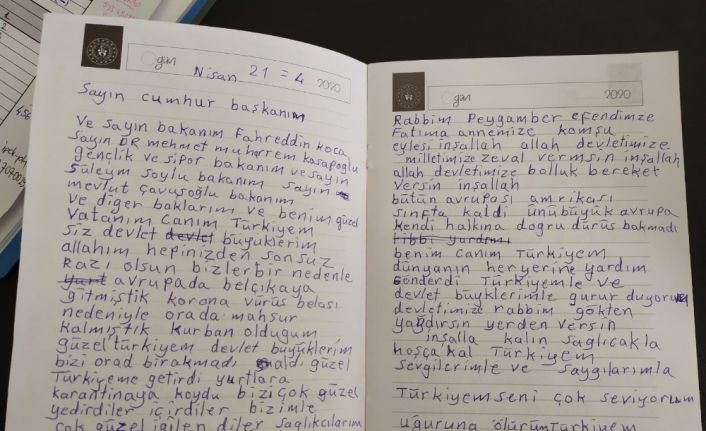 gün
Nisan 21 = 4 2020
Sayın cumhur başkanım
Ve sayın bakanım Fahreddin koca
sayın DR mehmet muhrrem kasapoğlu
gençlik ve sipor bakanım ve sayın
süleym soylu bakanım sayın
mevlut çavuşoğlu bakanım
Ve diğer baklarım ve benim güzel
Vatanım Canım Türkiyem
siz devlet devlet büyüklerim
allahım hepinizden sonsuz
Razı olsun bizler bir nedenle
yurt avrupada belçıkaya
gitmiştik korona vürüs belası
nedeniyle orada mahsur
kalmıştık kurban olduğum
güzel türkiyem devlet büyüklerim
bizi orad bırakmadı aldı güzel
Türkiyeme getirdi yurtlara
karantinaya koydu bizi çok güzel
yedirdiler içirdiler bizimle
çok güzel ilgilen diler sağlıkcılarım
gün
2020
Rabbim Peygamber efendimze
Fatıma annemize komşu
eylesi inşallah allah devletimize
milletimize zeval vermsin inşallah
allah devletimize bolluk bereket
versin inşallah
bütün avrupası amrikası
sınfta kaldı ünübüyük avrupa
kendi halkına doğru dürüs bakmadı
tıbbi yardımı
benim canım Türkiyem
dünyanın her yerine yardım
Gönderdi Türkiyemle ve
devlet büyüklerimle gurur duyorum
devletimize rabbim gökten
yağdırsın yerden versin
inşalla kalın sağlıcakla
hoşça kal Türkiyem
sevgilerimle ve saygılarımla
Türkiyem seni çok seviyorum
uğuruna ölürüm Türkiyem